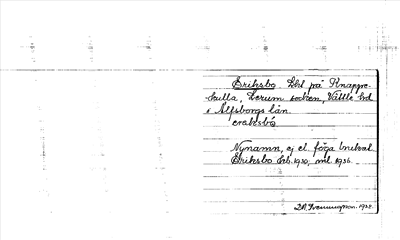 Eriksbo. Lht på Knappe-
kulla, Lerum socken, Vättle hd
i Älfsborgs län.
Nynamn, ej el. föga brukat.
Eriksbo 1930, ml. 1936.
1938.